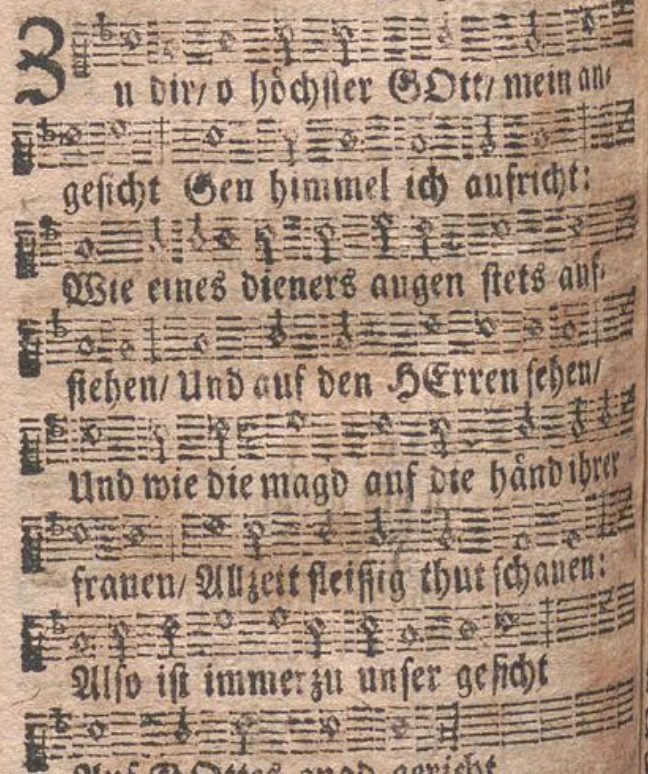 Zu dir/ o höchster GOtt/ mein an-
gesicht Gen himmel ich aufricht:
Wie eines dieners augen stets auf-
stehen/ Und auf den HErren sehen/
Und wie die magd auf die händ ihrer
frauen/ Allzeit fleissig thut schauen:
Also ist immerzu unser gesicht
Auf GOttes gnad gericht